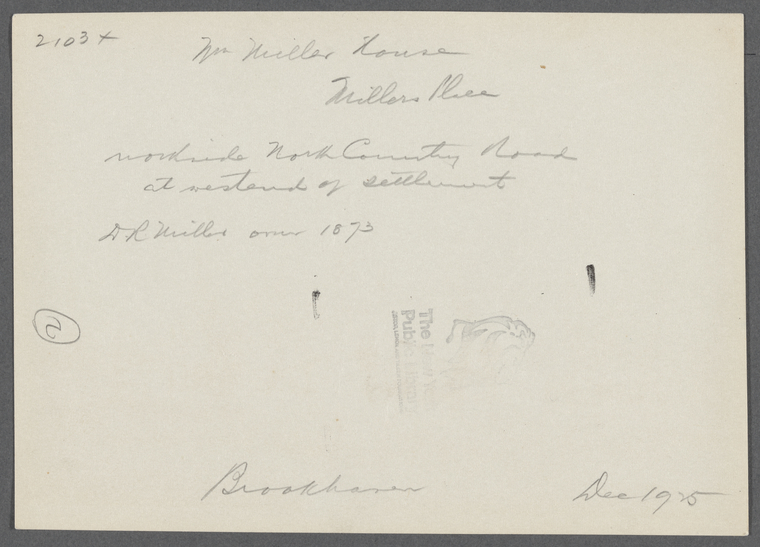 2103+
Wm Miller House
Millers Place
northside North Country Road
at westend of settlement
D R Miller owner 1873
2
The New York
Public Library
Brookhaven
Dec 1925